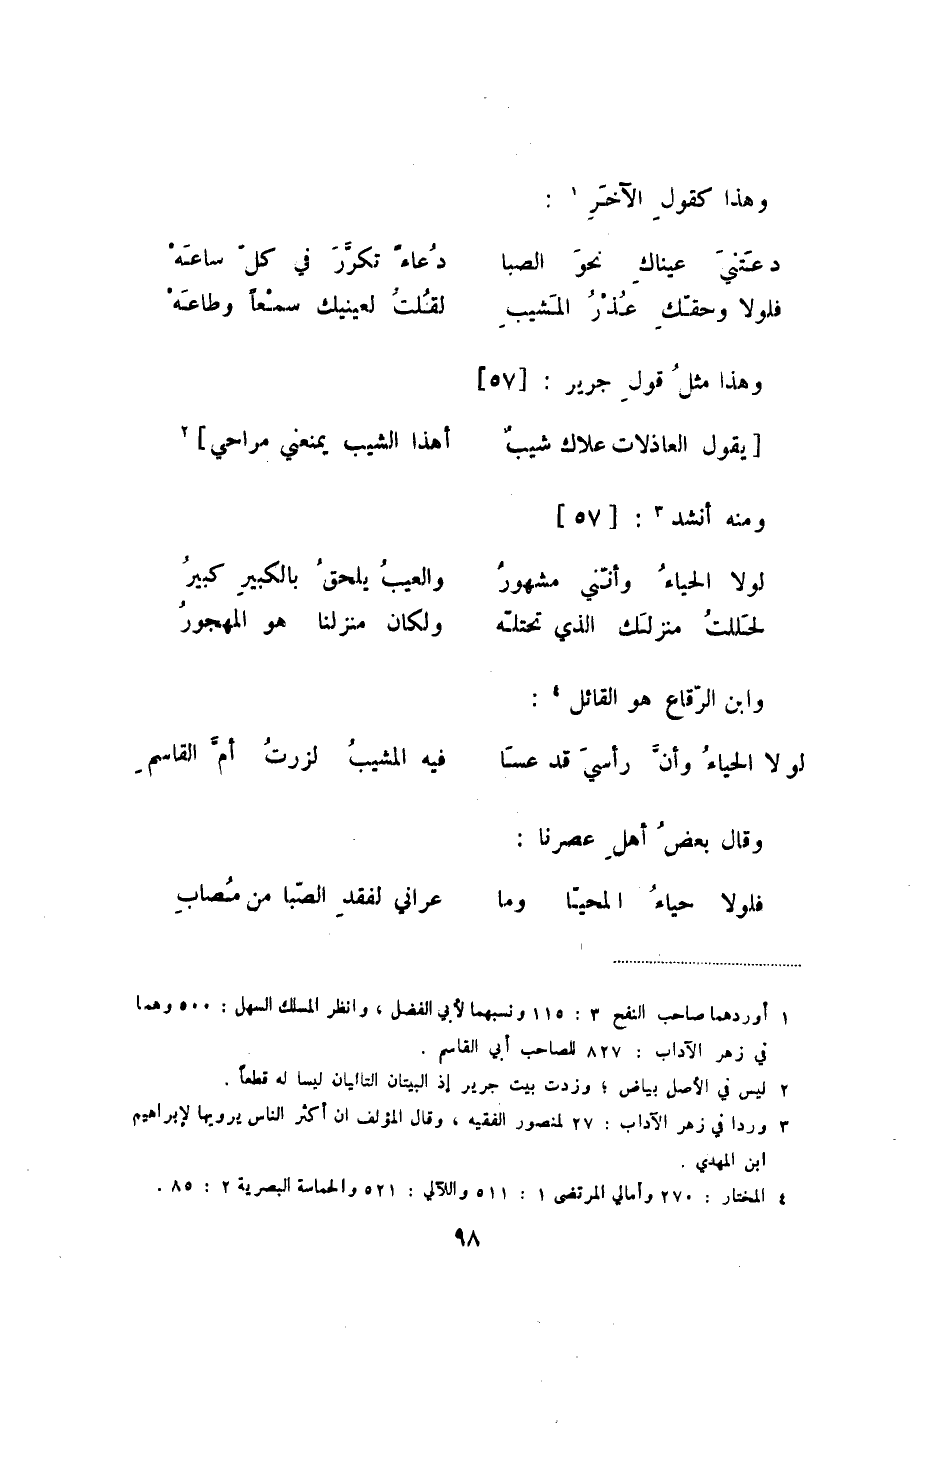 وهذا كقولِ الآخَرِ ١ :
دعَتنيَ عيناكِ نحوَ الصبا دُعاءً تكرَّرَ في كلّ ساعَهْ
فلولا وحقّكِ عُذْرُ المَشيبِ لقُلتُ لعينيك سمْعاً وطاعَهْ
وهذا مثلُ قولِ جرير : [٥٧]
[ يقول العاذلات علاك شيبٌ أهذا الشيب يمنعني مراحي ] ٢
ومنه أنشد ٣ : [ ٥٧ ]
لولا الحياءُ وأنّني مشهورُ والعيبُ يلحقُ بالكبيرِ كبيرُ
لحَللتُ منزلَك الذي تحتلّه ولكان منزلنا هو المهجورُ
وابن الرّقاع هو القائل ٤ :
لولا الحياءُ وأنَّ رأسيَ قد عسَا فيه المشيبُ لزرتُ أمَّ القاسمِ
وقال بعضُ أهلِ عصرنا :
فلولا حياءُ المحيّا وما عراني لفقدِ الصّبا من مُصابِ
١ أوردهما صاحب النفح ٣ : ١١٥ ونسبهما لأبي الفضل ، وانظر المسلك السهل : ٥٠٠ وهما
في زهر الآداب : ٨٢٧ للصاحب أبي القاسم .
٢ ليس في الأصل بياض ؛ وزدت بيت جرير إذ البيتان التاليان ليسا له قطعاً .
٣ وردا في زهر الآداب : ٢٧ لمنصور الفقيه ، وقال المؤلف ان أكثر الناس يرويها لإبراهيم
ابن المهدي .
٤ المختار : ٢٧٠ وأمالي المرتضى ١ : ٥١١ واللآلي : ٥٢١ والحماسة البصرية ٢ : ٨٥ .
٩٨